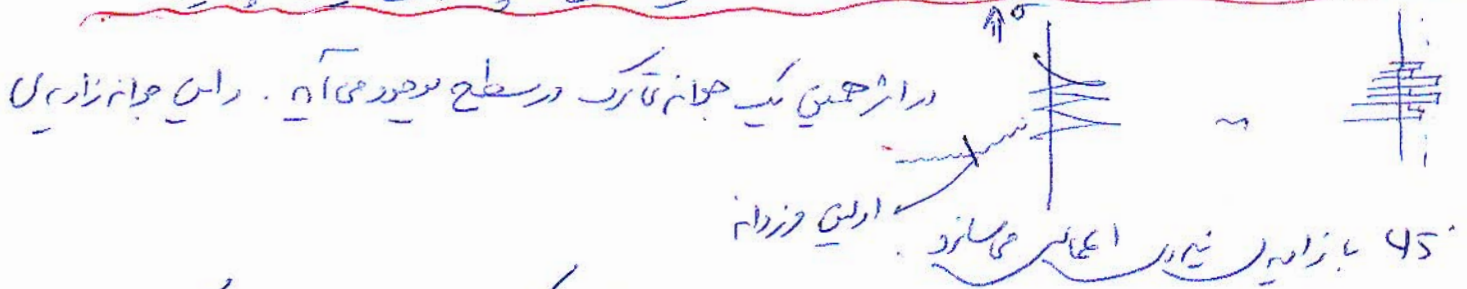 σ
در اثر همین یک جوانه ترک در سطح بوجود می‌آید. و این جوانه زاویه‌ی
اولین مرزدانه
45° با زاویه‌ی نیروی اعمالی می‌سازد.